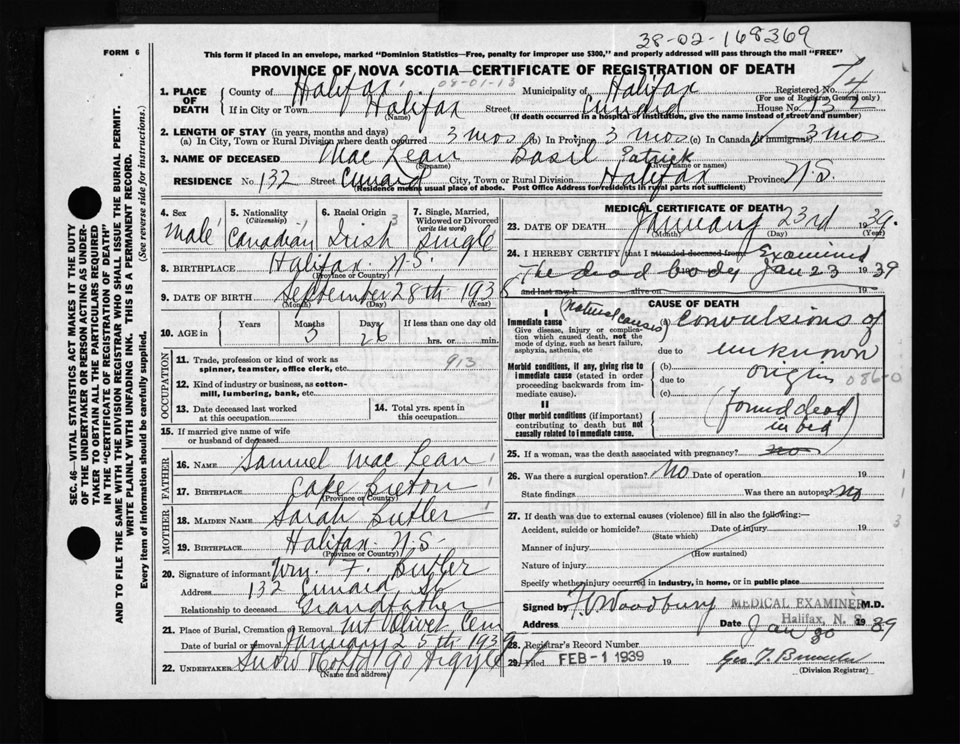 38-02-168369
FORM 6
This form if placed in an envelope, marked "Dominion Statistics—Free, penalty for improper use $300," and properly addressed will pass through the mail "FREE"
PROVINCE OF NOVA SCOTIA—CERTIFICATE OF REGISTRATION OF DEATH
04-01-13
1. PLACE OF DEATH
County of Halifax Municipality of Halifax Registered No. 74
(For use of Registrar General only)
If in City or Town Halifax Street Cunard House No. 132
(Name) (If death occurred in a hospital or institution, give the name instead of street and number)
2. LENGTH OF STAY (in years, months and days)
(a) In City, Town or Rural Division where death occurred 3 mos (b) In Province 3 mos (c) In Canada (if immigrant) 3 mos
3. NAME OF DECEASED Mac Lean Basil Patrick
(Surname) (Given name or names)
RESIDENCE No. 132 Street Cunard City, Town or Rural Division Halifax Province N.S.
(Residence means usual place of abode. Post Office Address for residents in rural parts not sufficient)
4. Sex Male
5. Nationality (Citizenship) Canadian
6. Racial Origin 3 Irish
7. Single, Married, Widowed or Divorced (write the word) Single
8. BIRTHPLACE Halifax N.S.
(Province or Country)
9. DATE OF BIRTH September 28th 1938
(Month) (Day) (Year)
10. AGE in Years Months Days If less than one day
3 26 hrs. or min.
OCCUPATION
11. Trade, profession or kind of work as spinner, teamster, office clerk, etc. 913
12. Kind of industry or business, as cotton-mill, lumbering, bank, etc.
13. Date deceased last worked at this occupation
14. Total yrs. spent in this occupation
15. If married give name of wife or husband of deceased
FATHER
16. NAME Samuel Mac Lean
17. BIRTHPLACE Cape Breton
(Province or Country)
MOTHER
18. MAIDEN NAME Sarah Butler
19. BIRTHPLACE Halifax N.S.
(Province or Country)
20. Signature of informant Wm. F. Butler
Address 132 Cunard St
Relationship to deceased Grandfather
21. Place of Burial, Cremation or Removal Mt Olivet Cem
Date of burial or removal January 25th 1939
22. UNDERTAKER Snow & Co Ltd 90 Argyle St
(Name and address)
MEDICAL CERTIFICATE OF DEATH
23. DATE OF DEATH January 23rd 1939
(Month) (Day) (Year)
24. I HEREBY CERTIFY that I attended deceased from Examined
The dead body Jan 23 1939
and last saw h alive on 19
CAUSE OF DEATH
I
Immediate cause (natural causes) (a) Convulsions of
Give disease, injury or complication which caused death, not the mode of dying, such as heart failure, asphyxia, asthenia, etc
due to unknown
Morbid conditions, if any, giving rise to immediate cause (stated in order proceeding backwards from immediate cause).
(b) origin 086-0
due to
(c)
II
Other morbid conditions (if important) contributing to death but not causally related to immediate cause.
(found dead in bed)
25. If a woman, was the death associated with pregnancy? no
26. Was there a surgical operation? No Date of operation 19
State findings Was there an autopsy? no
27. If death was due to external causes (violence) fill in also the following:—
Accident, suicide or homicide? Date of injury 19
(State which)
Manner of injury
(How sustained)
Nature of injury
Specify whether injury occurred in industry, in home, or in public place
Signed by Woodbury MEDICAL EXAMINER M.D.
Halifax, N. S.
Address Date Jan 30 1939
28. Registrar's Record Number
29. Filed FEB - 1 1939 19
(Division Registrar)
SEC. 46—VITAL STATISTICS ACT MAKES IT THE DUTY OF THE UNDERTAKER OR PERSON ACTING AS UNDERTAKER TO OBTAIN ALL THE PARTICULARS REQUIRED IN THE "CERTIFICATE OF REGISTRATION OF DEATH" AND TO FILE THE SAME WITH THE DIVISION REGISTRAR WHO SHALL ISSUE THE BURIAL PERMIT.
WRITE PLAINLY WITH UNFADING INK. THIS IS A PERMANENT RECORD.
Every item of information should be carefully supplied. (See reverse side for instructions.)